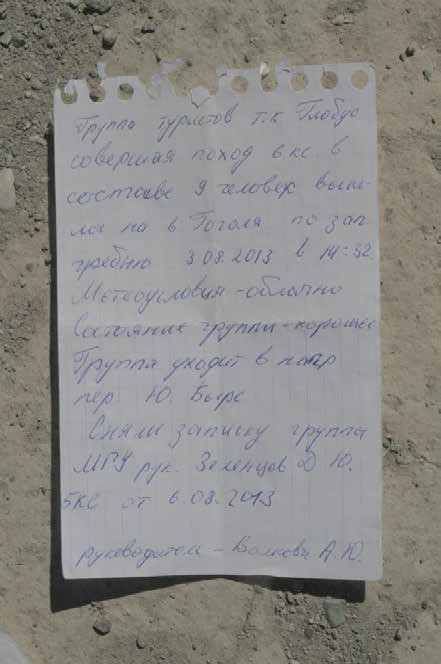 Группа туристов т.к Глобус
совершая поход 6 кс. в
составе 9 человек выш-
ла на в. Гоголя по зап
гребню 3.08.2013 в 14:32.
Метеоусловия - облачно
Состояние группы - хорошее
Группа уходит в напр
пер. Ю. Бырс
Сняли записку группы
МГУ рук. Зеленцов Д Ю.
5КС от 6.08.2013
руководитель - А.Ю.